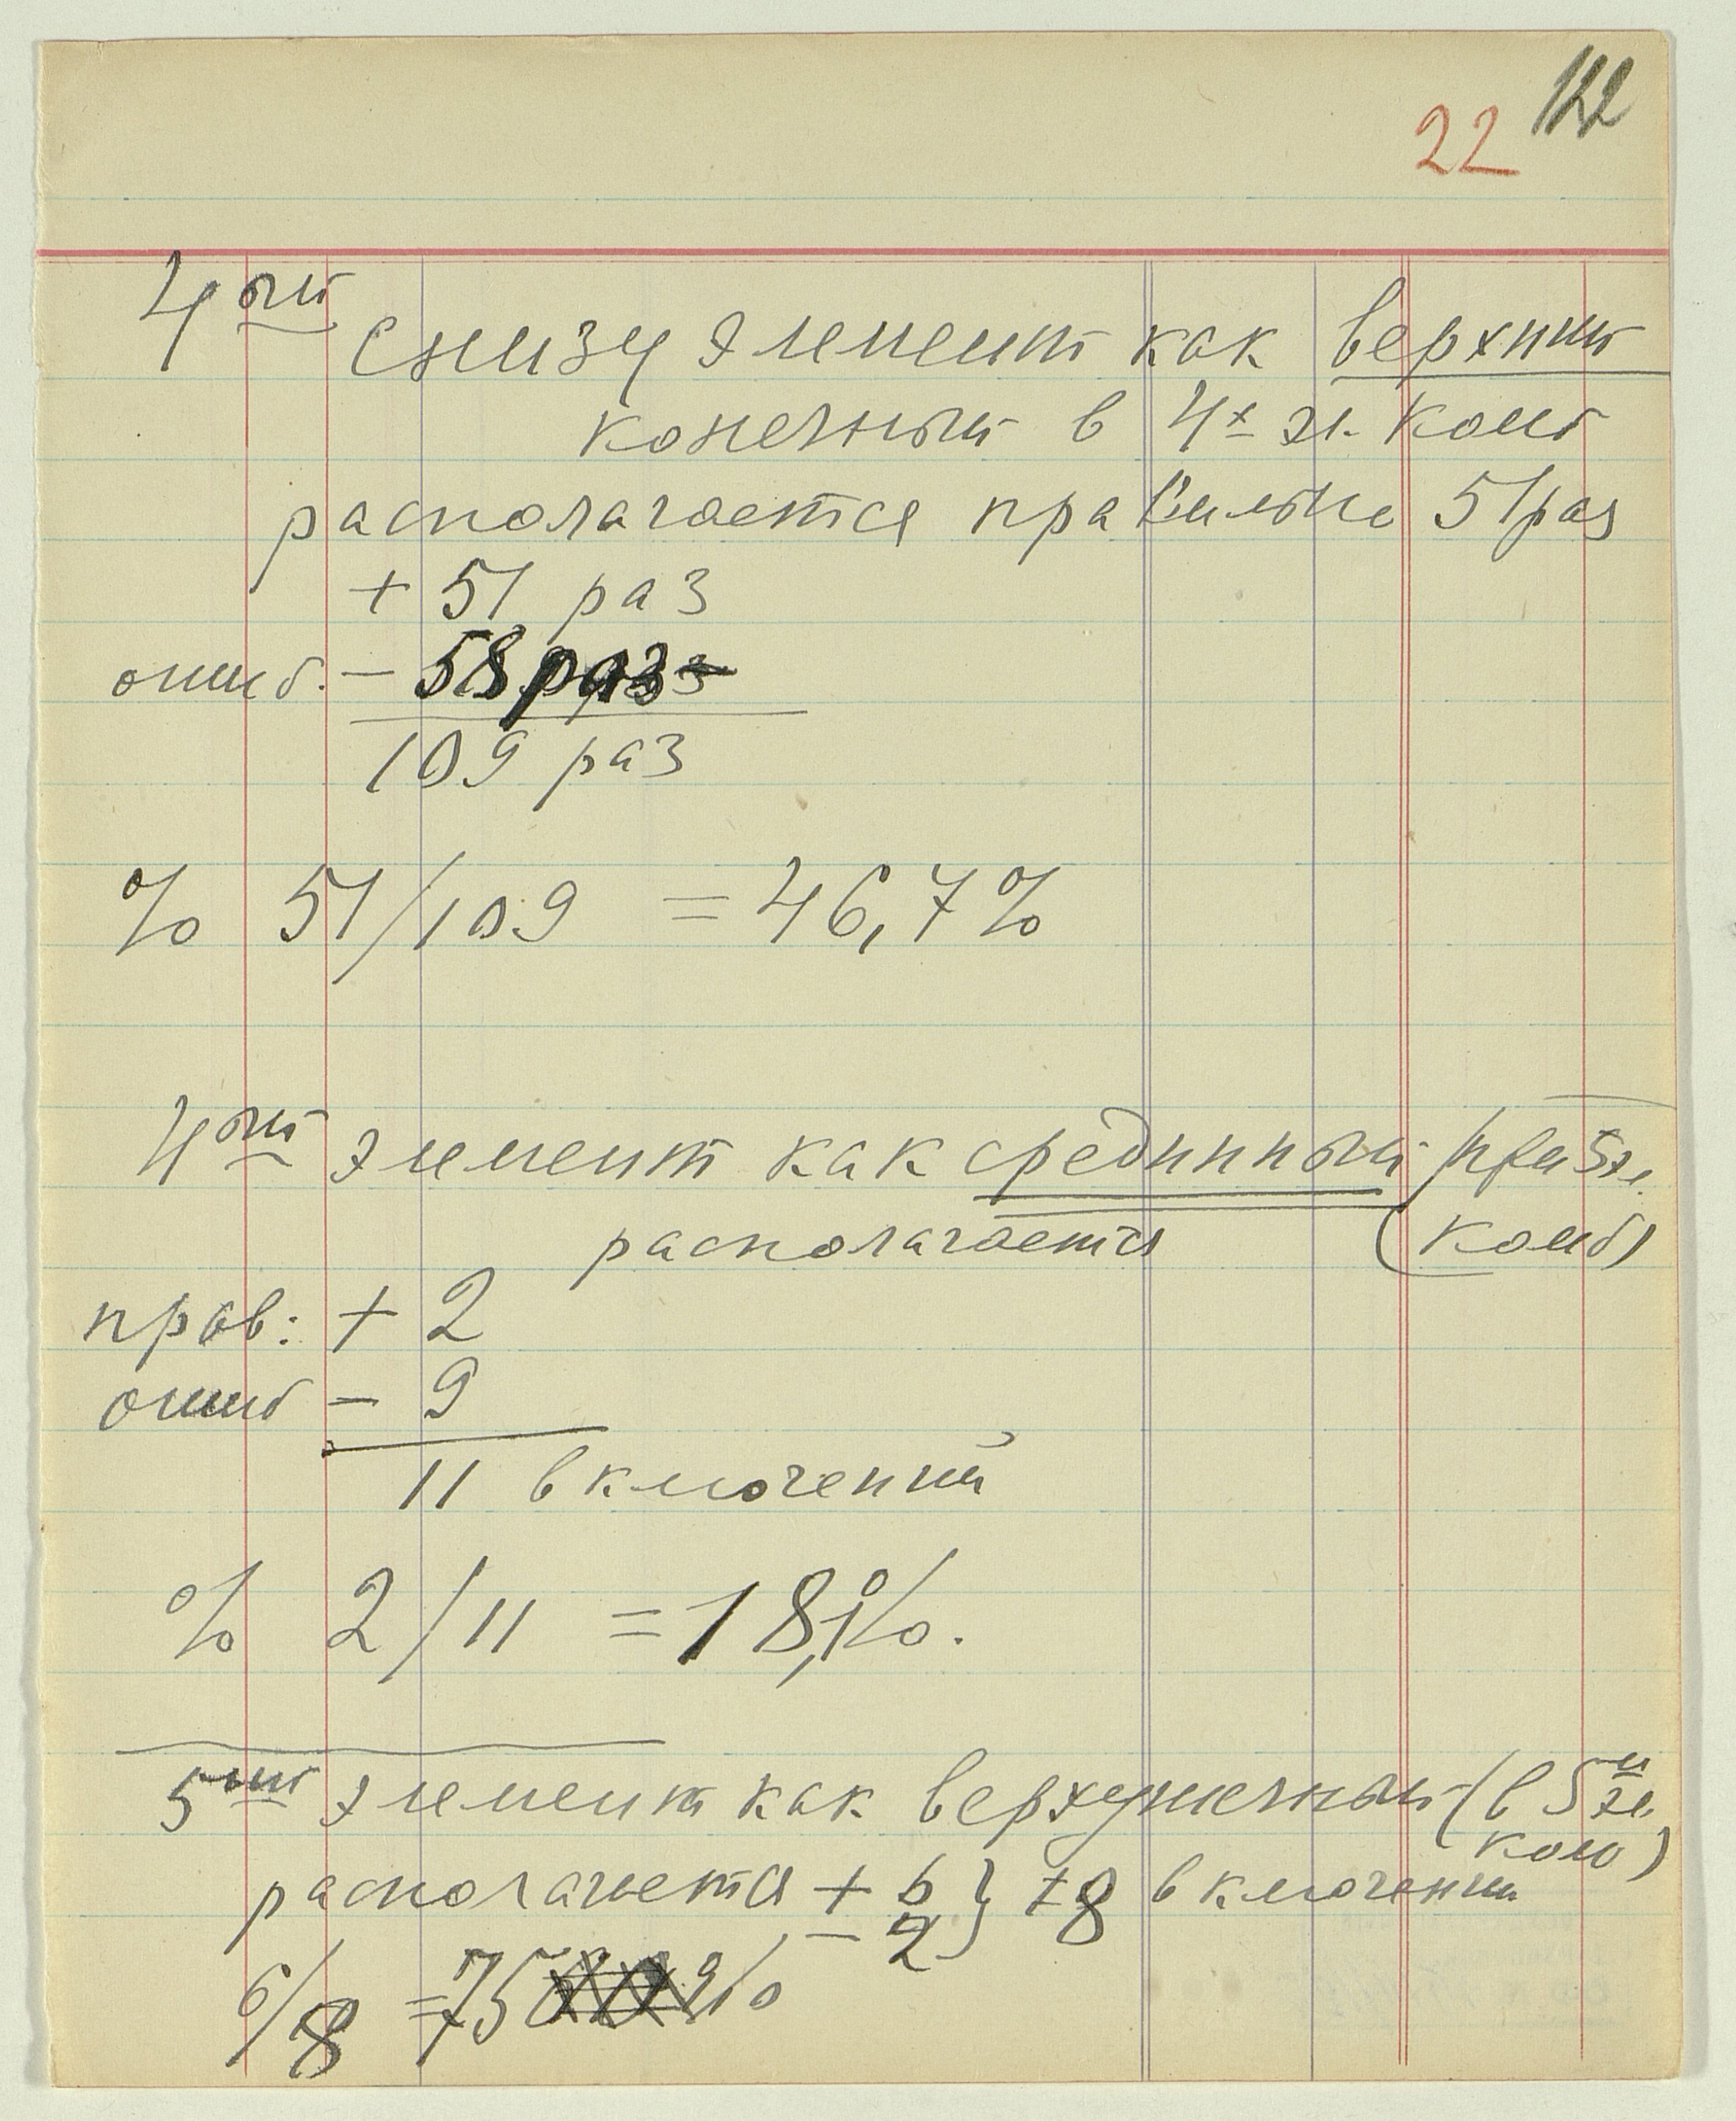 22 122
4ый снизу элемент как верхний
конечный в 4х эл. комб
располагается правильно 51 раз
+ 51 раз
ошиб. – 58 раз
109 раз
% 51/109 = 46,7%
4ый элемент как срединный при 5 эл.
располагается (комб)
прав: + 2
ошиб – 9
11 включений
% 2/11 = 18,1%.
5ый элемент как верхушечный (в 5и эл.
комб)
располагается + 6 } +8 включений
– 2
6/8 = 75 %